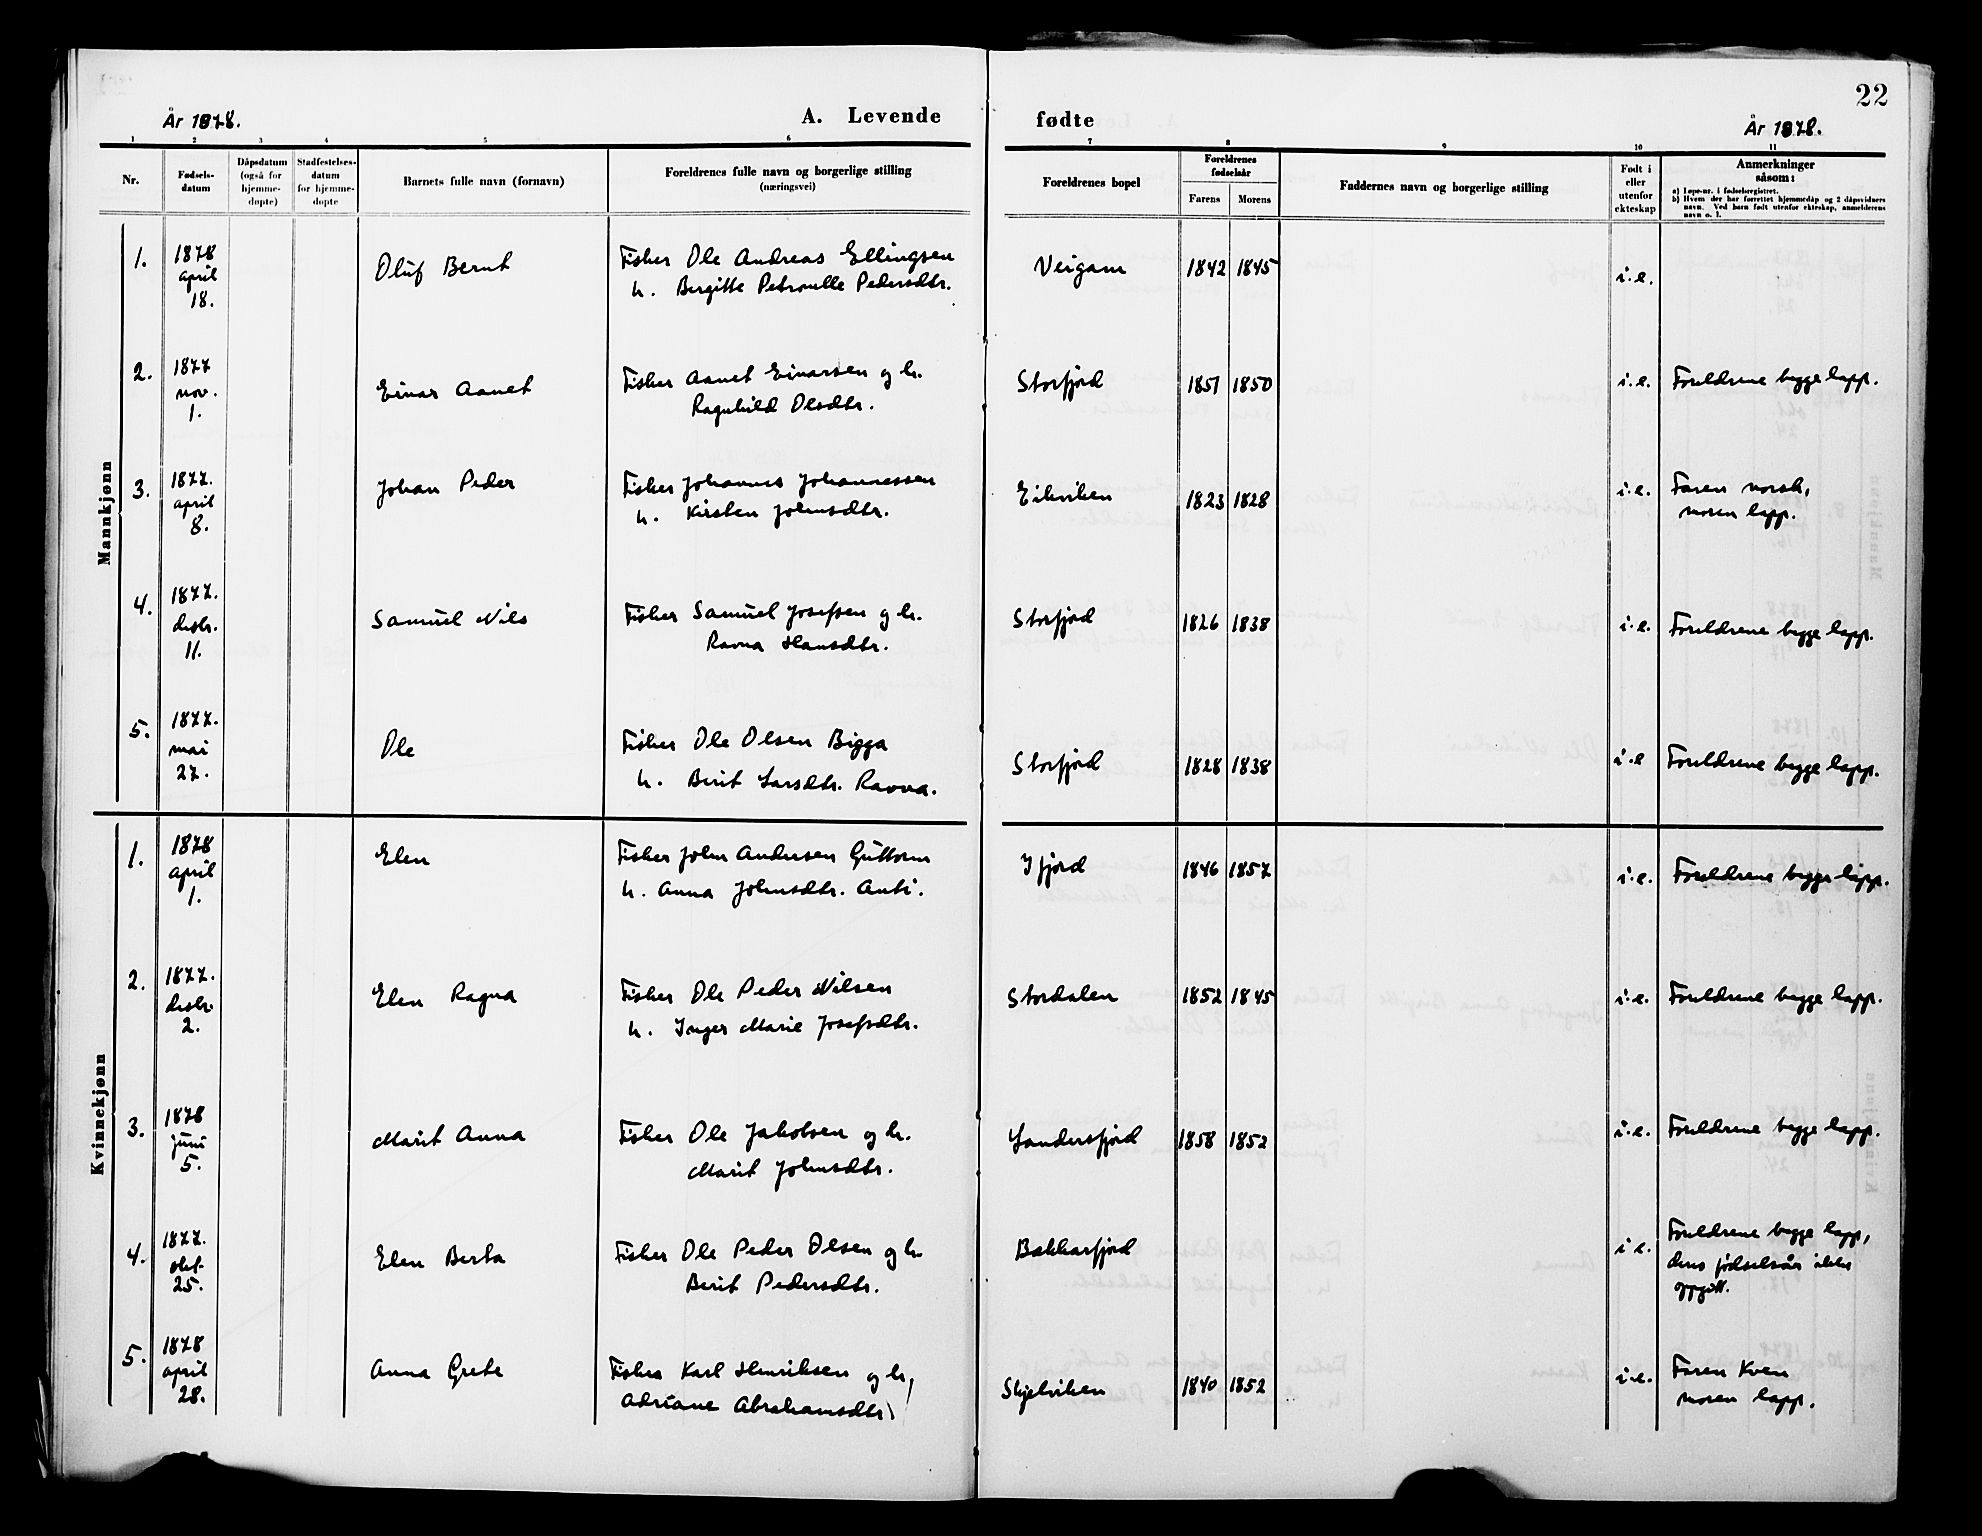 22
År 1878.
A. Levende
fødte
År 1878.
1 2 3 4 5 6 7 8 9 10 11
Nr.
Fødsels-
datum
Dåpsdatum
(også for
hjemme-
døpte)
Stadfestelses-
datum
for hjemme-
døpte
Barnets fulle navn (fornavn)
Foreldrenes fulle navn og borgerlige stilling
(næringsvei)
Foreldrenes bopel
Foreldrenes
fødselsår
Farens Morens
Faddernes navn og borgerlige stilling
Født i
eller
utenfor
ekteskap
Anmerkninger
såsom:
a) Løpe-nr. i fødselsregistret.
b) Hvem der har forrettet hjemmedåp og 2 dåpsvidners
navn. Ved barn født utenfor ekteskap, anmelderens
navn o. l.
Mannkjønn
1.
1878
april
18.
Oluf Bernt
Fisker Ole Andreas Ellingsen
h. Bergitte Petronelle Pedersdtr.
Veigam
1842 1845
i.e.
2.
1877
nov.
1.
Einar Aanet
Fisker Aanet Einarsen og h.
Ragnhild Olsdtr.
Storfjord
1851 1850
i.e.
Foreldrene begge lapp.
3.
1877.
april
8.
Johan Peder
Fisker Johannes Johannessen
h. Kirsten Johnsdtr.
Eikviken
1823 1828
i.e.
Faren norsk,
moren lapp.
4.
1877.
desbr.
11.
Samuel Nils
Fisker Samuel Josefsen og h.
Ravna Hansdtr.
Storfjord
1826 1838
i.e.
Foreldrene begge lapp.
5.
1877.
mai
27.
Ole
Fisker Ole Olsen Bigga
h. Berit Larsdtr. Ravna.
Storfjord
1828 1838
i.e
Foreldrene begge lapp.
Kvinnekjønn
1.
1878
april
1.
Elen
Fisker John Andersen Guttorm
h. Anna Johnsdtr. Anti.
Ifjord
1846 1857
i.e.
Foreldrene begge lapp.
2.
1877.
desbr
2.
Elen Ragna
Fisker Ole Peder Nilsen
h. Inger Marie Josefsdtr.
Stordalen
1852 1845
i.e.
Foreldrene begge lapp.
3.
1878
juni
5.
Marit Anna
Fisker Ole Jakobsen og h.
Marit Johnsdtr.
Landersfjord
1858 1852
i.e.
Foreldrene begge lapp.
4.
1877.
okt.
25.
Elen Berta
Fisker Ole Peder Olsen og h.
Berit Pedersdtr.
Bakkarfjord
i e.
Foreldrene begge lapp,
deres fødselsår ikke
oppgitt.
5.
1878
april
28.
Anna Grete
Fisker Karl Henriksen og h,
Adriane Abrahamsdtr
Skjelviken
1840 1852
i.e.
Faren Kven
moren lapp.